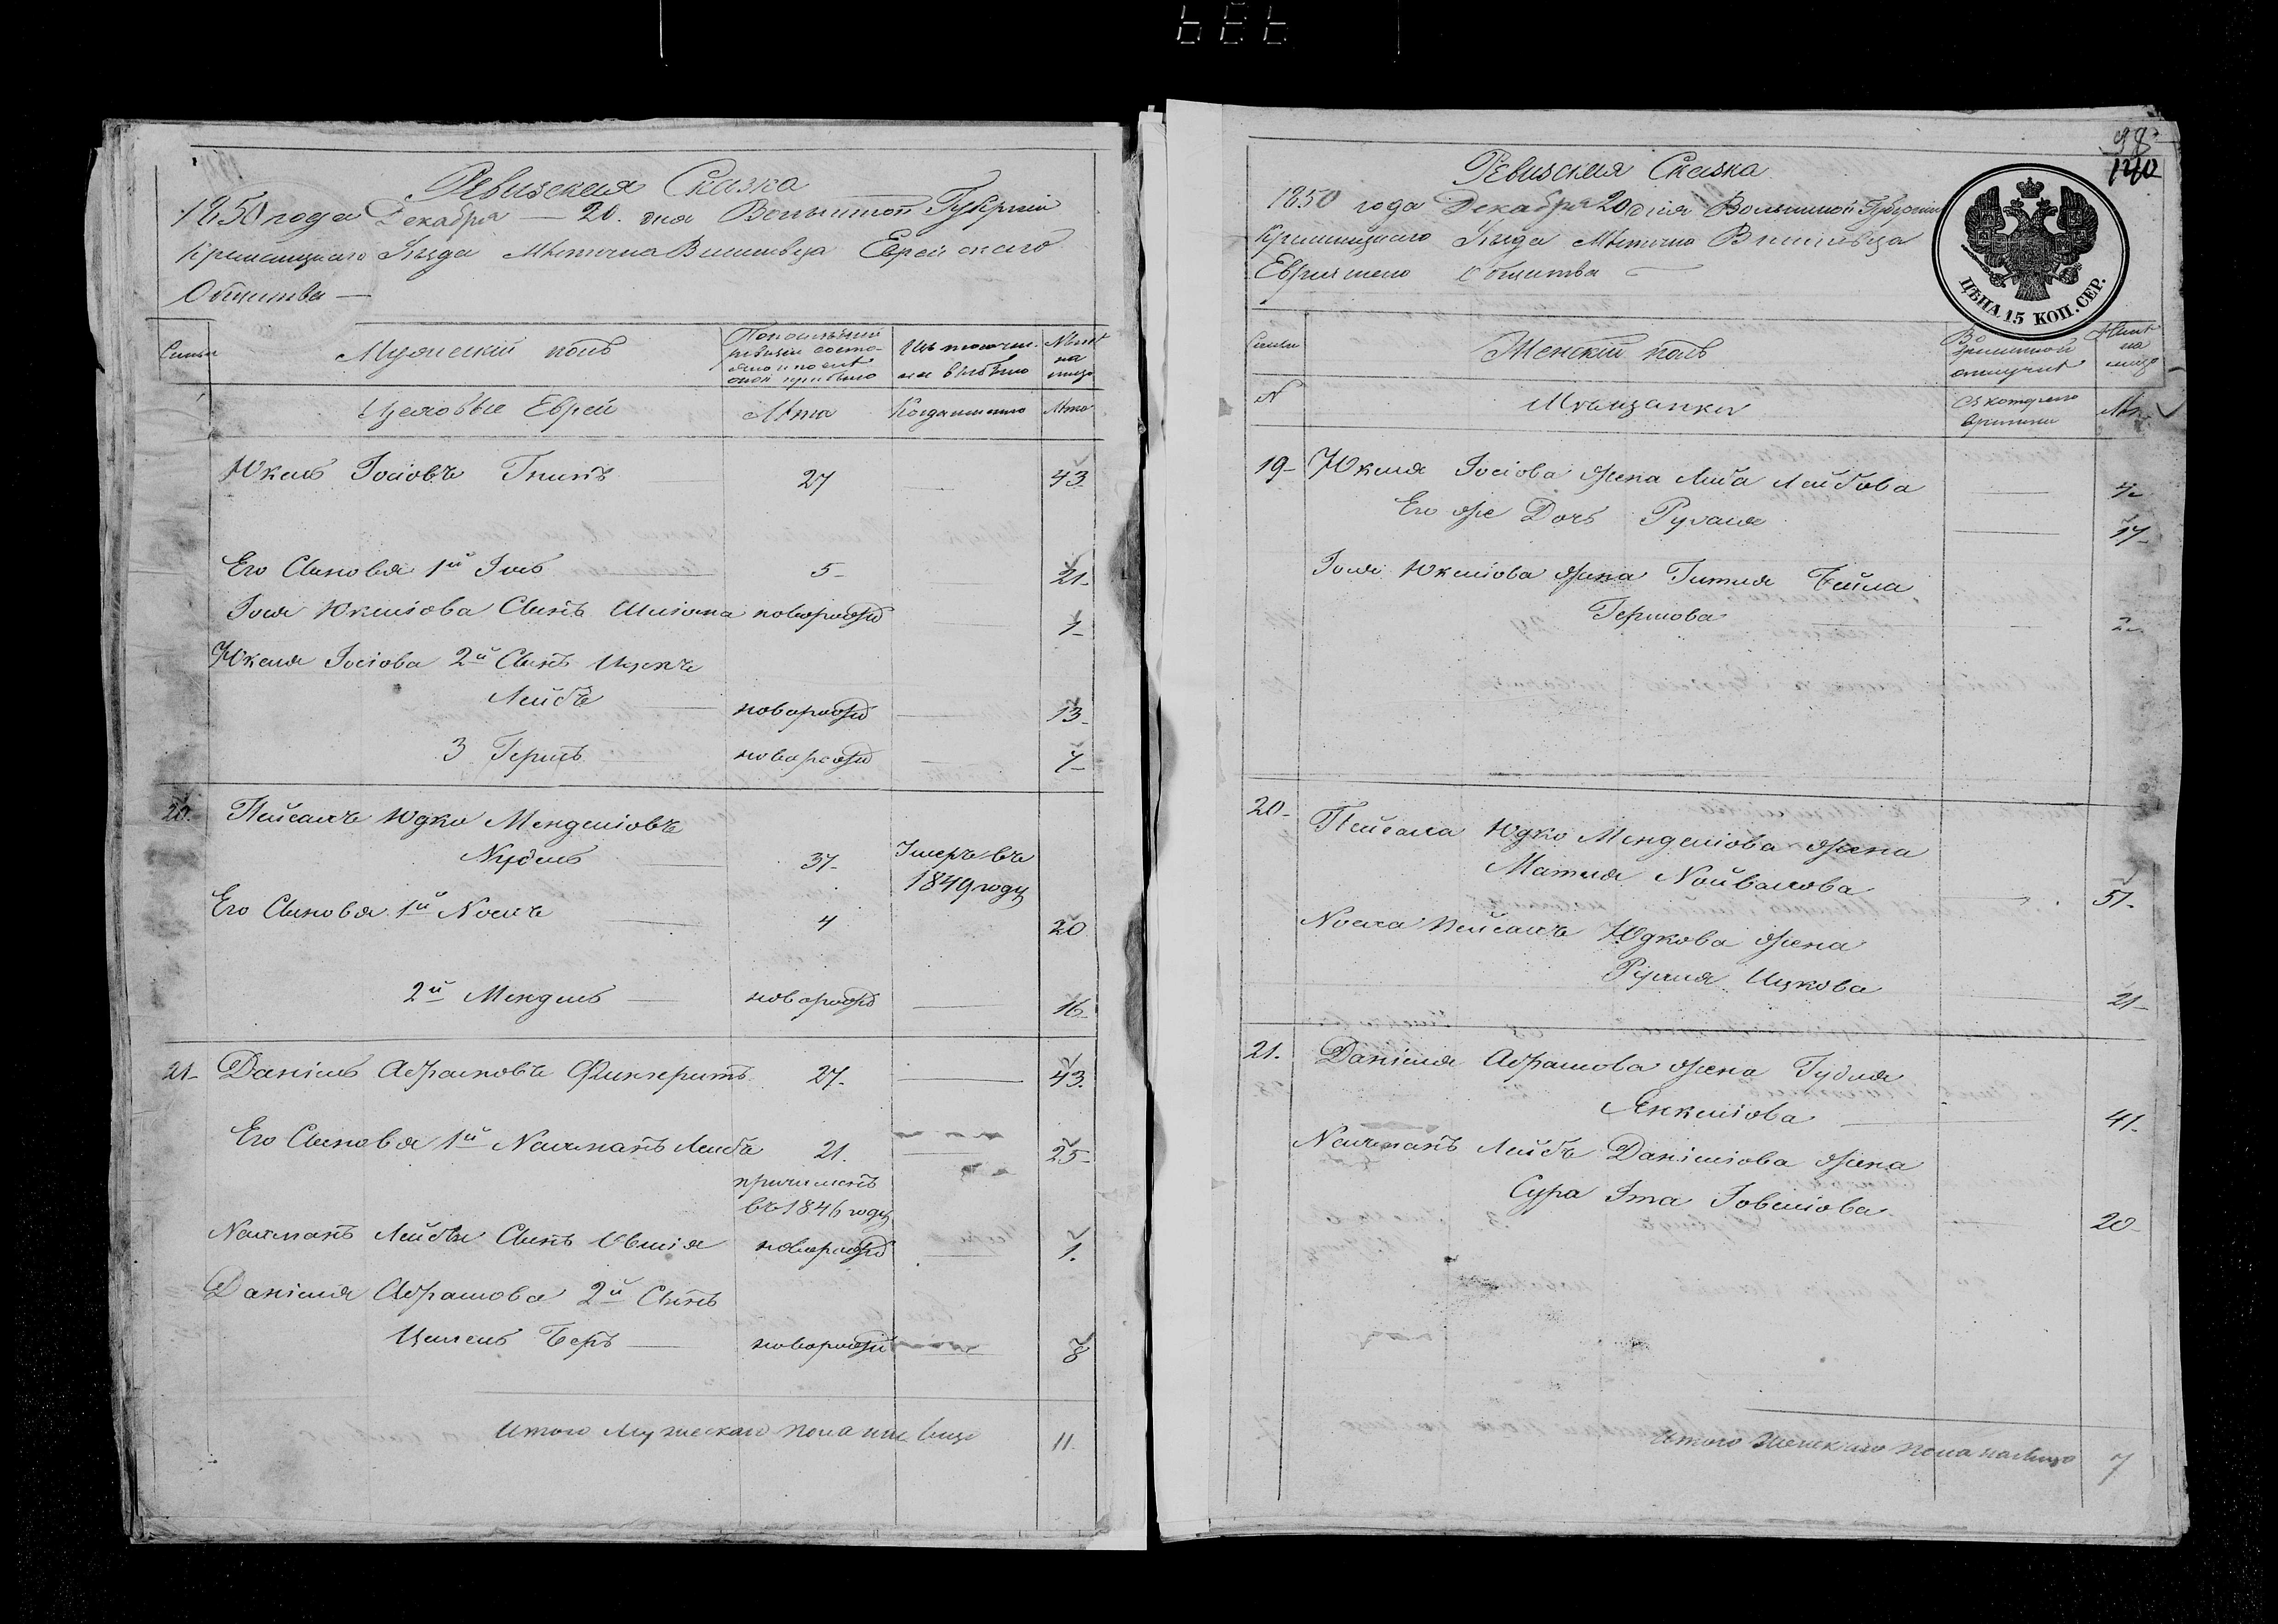 Ревизская Сказка
1850 года Декабря — 20. дня Волынской Губерніи
Кременецкаго Уѣзда Мѣстечка Вишневца Еврейскаго
Общества —
Семьи
Мужескій полъ
Изъ того числа выбыло
Нынѣ на лицо
Цеховые Евреи
Лѣта
Когда именно
Лѣта
Юкель Іосіовъ
27
43
Его Сыновья 1й Іось
5
21
Іося Юкеліова Сынъ новорожд
1
Юкеля Іосіова 2й Сынъ Ицекъ
Лейбъ
новорожд
13
3 Гершъ
новорожд
7
20.
Пейсахъ Юдко Менделіовъ
Нудель
37
Умеръ въ
1849 году
Его Сыновья 1й Носехъ
4
20
2й Мендель
новорожд
16
21
Даніель Абрамовъ
27
43
Его Сыновья 1й Нахманъ Лейбъ
21.
25
причисленъ
въ 1846 году
Нахманъ Лейбы Сынъ Овшія
новорожд
1.
Даніеля Абрамова 2й Сынъ
Беръ
новорожд
8
Итого Мужескаго пола на лицо
11
98
140
Ревизская Сказка
1850 года Декабря 20 дня Волынской Губерніи
Кременецкаго Уѣзда Мѣстечка Вишневца
Еврейскаго Общества
ЦѢНА 15 КОП. СЕР.
Семьи
Женскій полъ
Во временной отлучкѣ
Нынѣ на лицо
№
Мѣщанки
Съ котораго времени
Лѣта
19
Юкеля Іосіова жена Лейбова
Его же Дочь
17
Іося Юкеліова жена Гитля Бейла
Гершова
2
20
Пейсаха Юдко Менделіова жена
Матля
51
Носеха Пейсахъ Юдкова жена
Рухля Ицкова
21
21.
Даніеля Абрамова жена
Янкеліова
41
Нахманъ Лейбъ Даніеліова жена
Сура Ита Іовеліова
20
Итого Женскаго пола на лицо
7